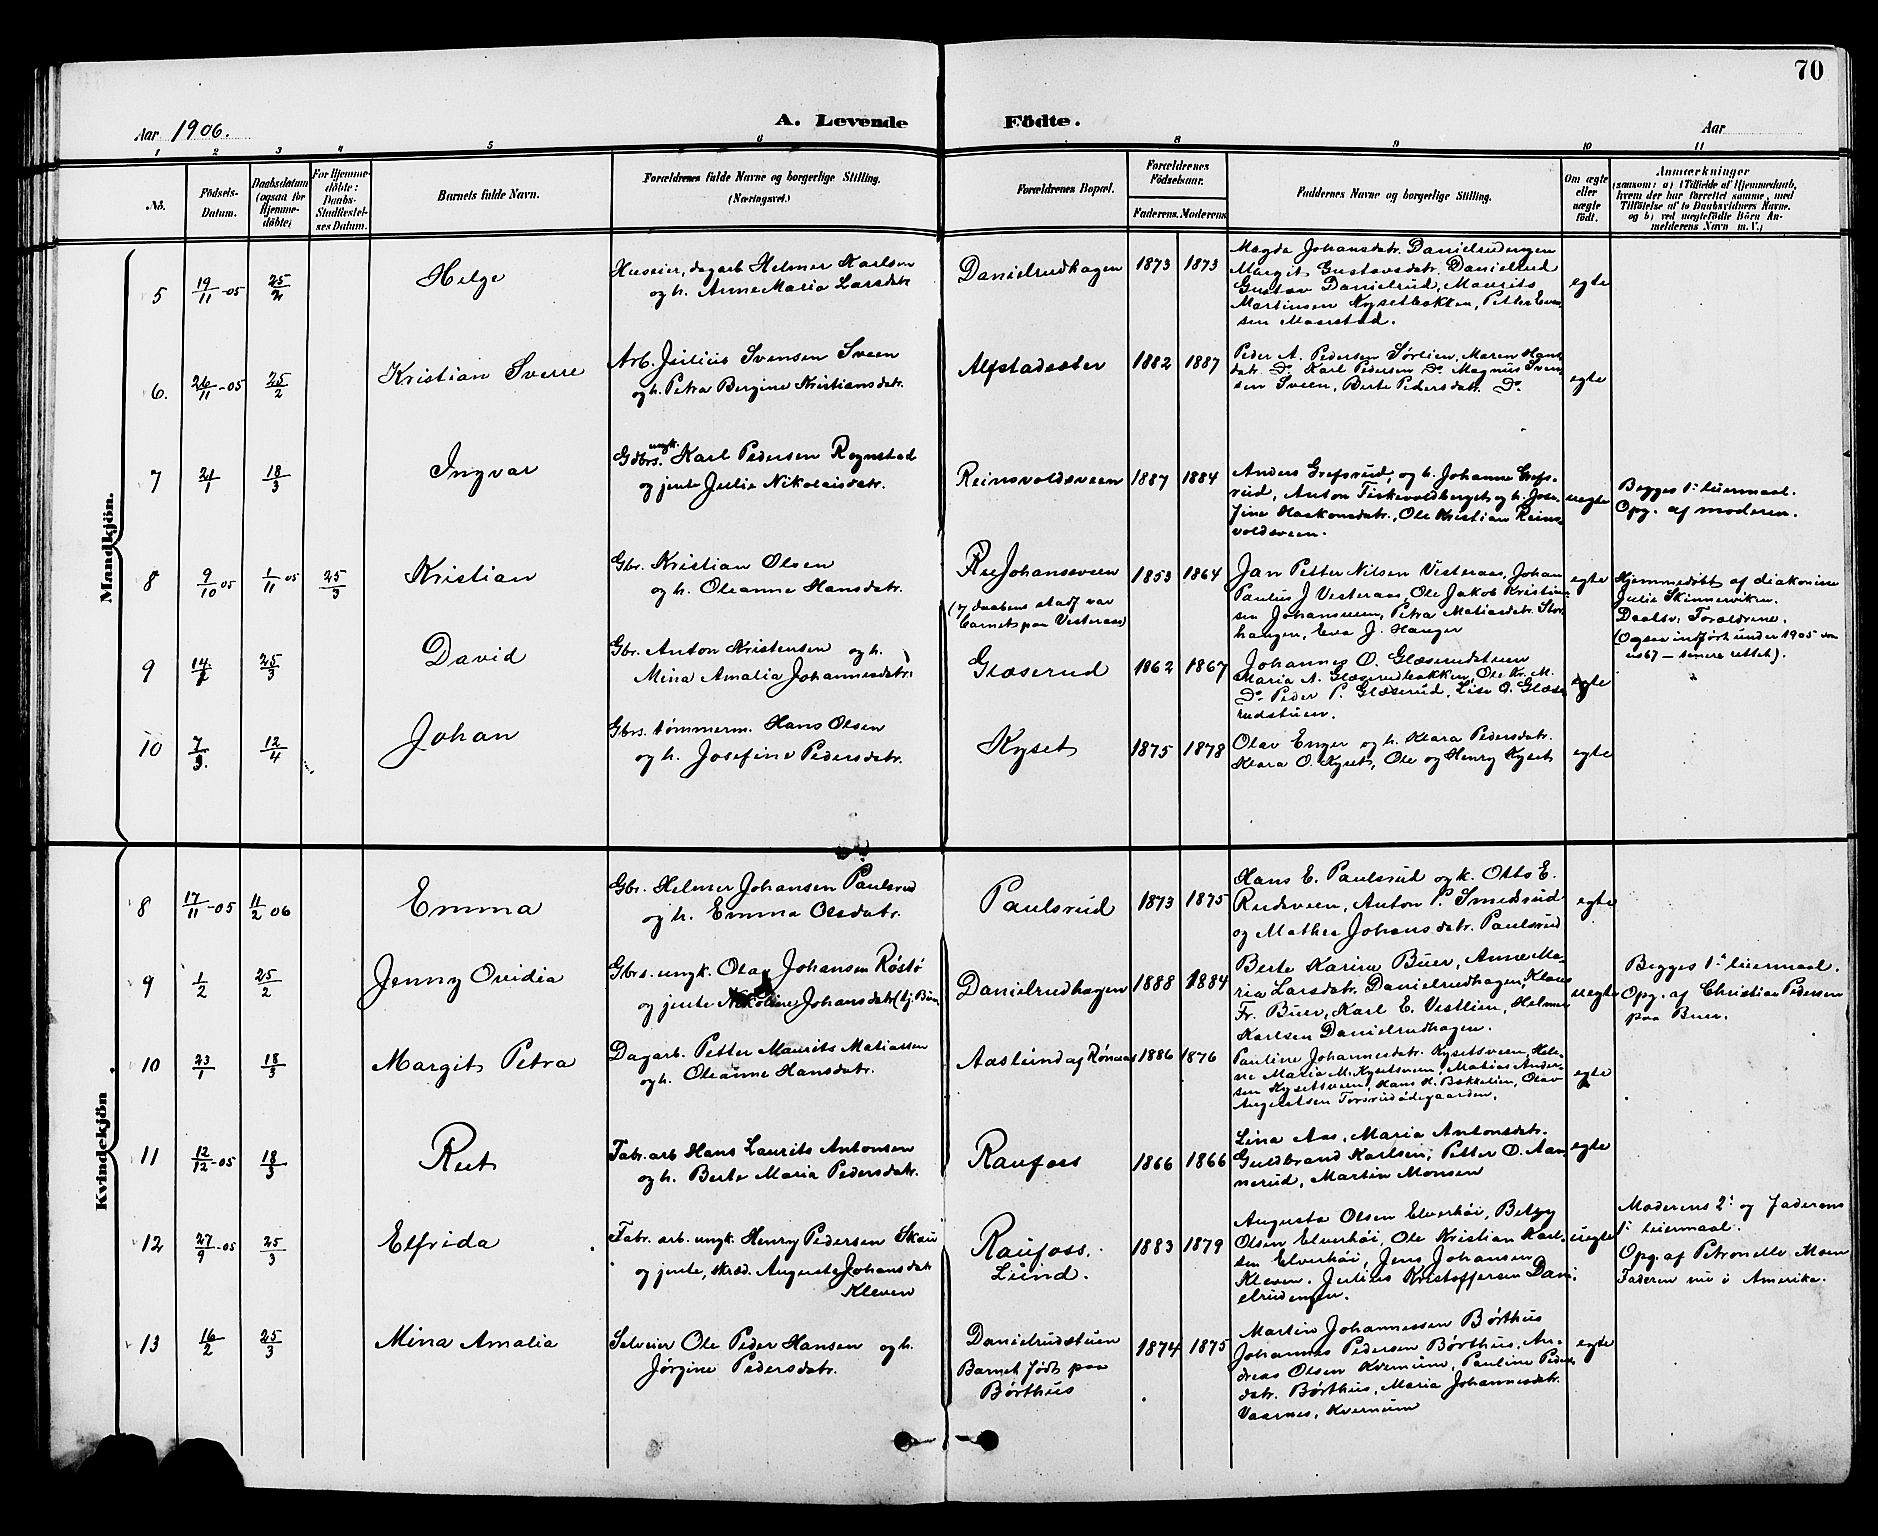 70
Aar 1906.
A. Levende Födte.
Aar
1 2 3 4 5 6 8 9 10 11
No.
Födsels-
Datum.
Daabsdatum
(ogsaa for
Hjemme-
döbte)
For Hjemme-
döbte:
Daabs-
Stadfæstel-
ses Datum.
Barnets fulde Navn.
Forældrenes fulde Navne og borgerlige Stilling.
(Næringsvei.)
Forældrenes Bopæl.
Forældrenes
Födselsaar.
Faderens. Moderens.
Faddernes Navne og borgerlige Stilling.
Om ægte
eller
uægte
födt.
Anmærkninger
(saasom: a) i Tilfælde af Hjemmedaab,
hvem der har forrettet samme, med
Tilföielse af to Daabsvidners Navne.
og b) ved uægtefödte Börn An-
melderens Navn m. V.)
Mandkjön.
5
19/11 -05
25/2
Helge
Huseier, dagarb. Helmer Karlsen
og h. Anne Maria Larsdatr.
Danielrudhagen
1873 1873
Magda Johansdatr. Danielrudengen
Margit Gustavsdatr. Danielrud
Gustav Danielrud, Maurits
Martinsen Kysetbakken, Petter Even-
sen Maurstad.
egte
6.
26/11 -05
25/2
Kristian Sverre
Arb. Julius Svensen Sveen
og h. Petra Bergine Kristiansdatr.
Alfstadeter
1882 1887
Peder A. Pedersen Sørlien, Maren Hans
datr. Do. Karl Pedersen Do. Magnus Sven-
sen Sveen, Berte Pedersdatr. Do.
egte
7
21/1
18/3
Ingvar
Gdbrs. ungk. Karl Pedersen Rognstad
og jente Julie Nikolaisdatr.
Reinsvoldsveen
1887 1884
Anders Grefsrud, og h. Johanne Grefs-
rud, Anton Fiskevoldberget og h. Jose-
fine Haakonsdatr., Ole Kristian Reins-
voldsveen.
uegte
Begges 1ste leiermaal.
Opg. af moderen.
8
9/10 05
1/11 05
25/3
Kristian
Gbr. Kristian Olsen
og h. Oleanne Hansdatr.
Rue Johansveen
(v. daabens stadf. var
barnet paa Vesteraas)
1853 1864
Jan Petter Nilsen Vesteraas, Johan
Paulus J Vesteraas, Ole Jakob Kristian-
sen Johansveen, Petra Matiasdatr. Stor-
haugen, Eva J. Hauger
egte
Hjemmedöbt af diakonisse
Julie Skinnerviken.
Daabsv: Forældrene.
(Ogsaa indført under 1905 som
no 67 — senere rettet).
9
14/2
25/3
David
Gbr. Anton Kristensen og h.
Mina Amalia Johannesdatr.
Glæserud
1862 1867
Johannes O. Glæserudstuen
Maria A. Glæserudbakken, Ole Kr. M.
Do. Peder P. Glæserud, Lise O. Glæse-
rudstuen.
egte
10
7/3.
12/4
Johan
Gbrs. tømmerm. Hans Olsen
og h. Josefine Pedersdatr.
Kyset
1875 1878
Olav Enger og h. Klara Pedersdatr.
Klara O. Kyset, Ole og Henry Kyset
egte
Kvindekjön
8
17/11 -05
11/2 06
Emma
Gbr. Helmer Johansen Paulsrud
og h. Emma Olsdatr.
Paulsrud
1873 1875
Hans E. Paulsrud og k. Otto E.
Rudsveen, Anton P. Smedsrud
og Mathea Johansdatr. Paulsrud
egte
9
1/2
25/2
Jenny Ovidia
Gbrs. ungk. Olav Johansen Røstø
og jente Nikoline Johansdatr. (tj. Buer
Danielrudhagen
1888 1884
Berte Karine Buer, Anne Ma-
ria Larsdatr. Danielrudhagen, Klaus
Fr. Buer, Karl E. Vestlien, Helmer
Karlsen Danielrudhagen.
uegte
Begges 1ste leiermaal.
Opg. af Christian Pedersen
paa Buer.
10
23/1
18/3
Margit Petra
Dagarb. Petter Maurits Matiassen
og h. Oleanne Hansdatr.
Aaslund af Rønaas
1886 1876
Pauline Johannesdatr. Kysetsveen, Hele-
ne Maria M. Kysetsveen, Matias Ander-
sen Kysetsveen, Hans H. Bakkelien, Olav
Augustsen Torsrudødegaarden.
egte
11
12/12 -05
18/3
Rut
Fabr. arb. Hans Laurits Antonsen
og h. Berte Maria Pedersdatr.
Raufoss
1866 1866
Lina Aas, Maria Antonsdatr.
Guldbrand Karlsen, Petter O. Aan-
nerud, Martin Monsen
egte
12
27/9 -05
25/3
Elfrida
Fabr. arb. ungk. Henry Pedersen Skau
og jente, skræd. Augusta Johansdatr.
Kleven
Raufoss.
Lund.
1883 1879
Augusta Olsen Elverhøi, Betzy
Olsen Elverhøi, Ole Kristian Karl-
sen Elverhøi, Jens Johansen
Kleven. Julius Kristoffersen Dani-
elrudengen.
uegte
Moderens 2. og Faderens
1ste leiermaal.
Opg. af Petronelle Moen
Faderen nu i Amerika.
13
16/2
25/3
Mina Amalia
Selveier Ole Peder Hansen og h.
Jørgine Pedersdatr.
Danielrudstuen
Barnet født paa
Børthus
1874 1875
Martin Johannessen Børthus
Johannes Pedersen Børthus, An-
dreas Olsen Kvernum, Pauline Peders-
datr. Børthus, Maria Johannesdatr.
Vaarnes, Kvernum
egte